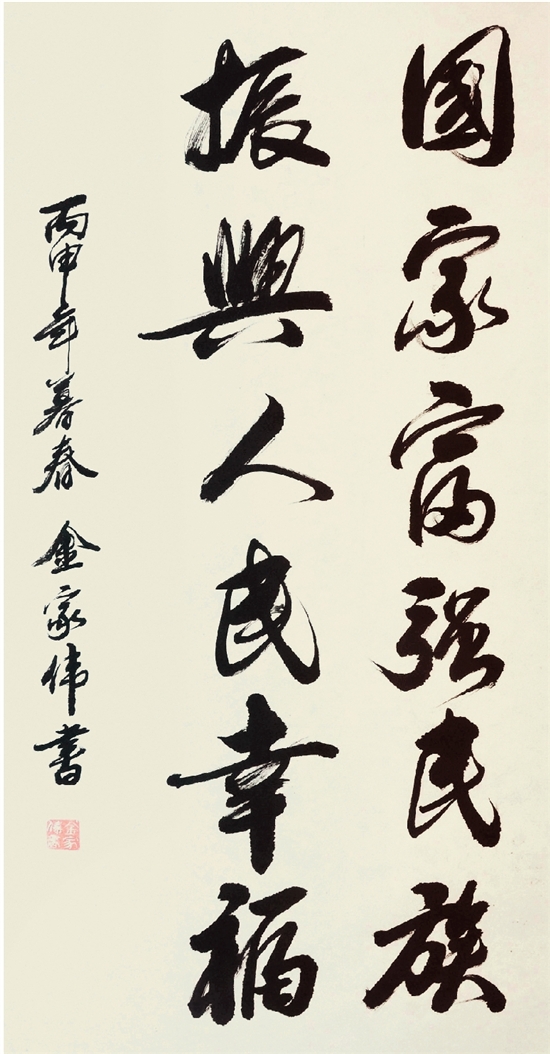 國家富强民族
振興人民幸福
丙申年暮春 金家伟書